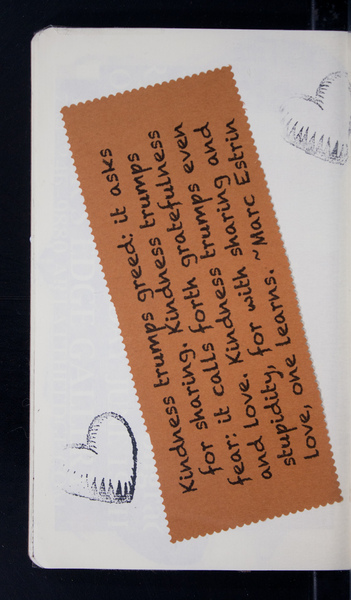 Kindness trumps greed: it asks
for sharing. Kindness trumps
fear: it calls forth gratefulness
and love. Kindness trumps even
stupidity, for with sharing and
love, one learns. ~Marc Estrin